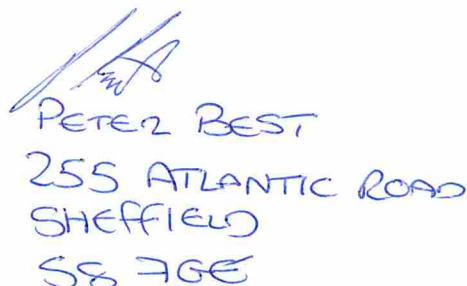 PETER BEST
255 ATLANTIC ROAD
SHEFFIELD
S8 7GE